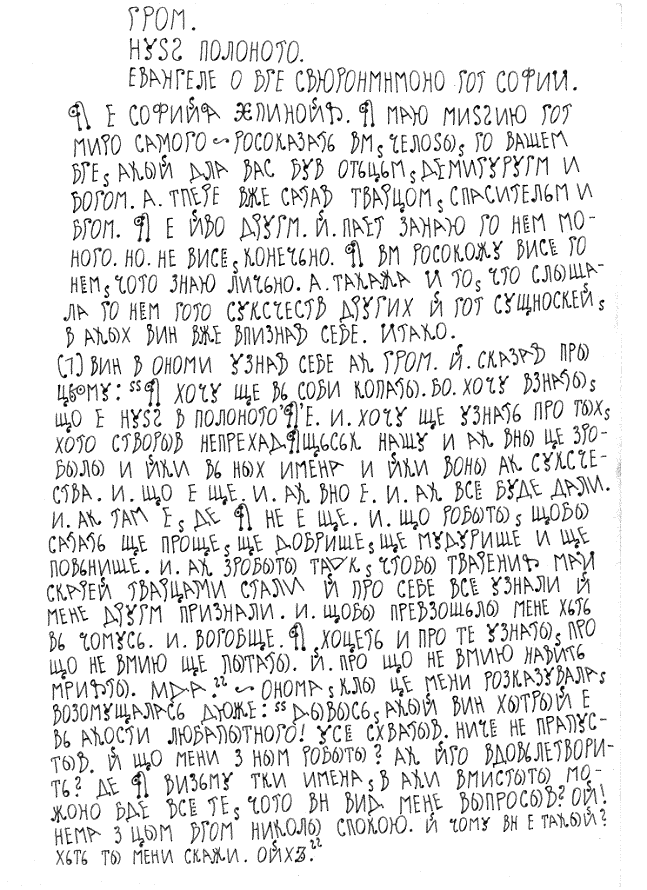 ГРОМ.
НУЅЅ ПОЛОНОТО.
ЕВАНГЕЛЕ О БГЕ СВЮРОНМНМОНО ГОТ СОФИИ.
¶ Е СОФИЙꙖ ЖПИНОЙꙖ. ¶ МАЮ МИЅЅИЮ ГОТ
МИРО САМОГО ~ РОСОКАЗАТЬ ВМ, ЧЕЛОЅЫ, ГО ВАШЕМ
БГЕ, АКЫЙ ДЛА ВАС БУВ ОТЬЦЬМ, ДЕМИГУРУГМ И
БОГОМ. А. ТПЕРЕ ВЖЕ САТАВ ТВАРЦОМ, СПАСИТЕЛЬМ И
БГОМ. ¶ Е ЙВО ДРУГМ. Й. ПАЕТ ЗАНАЮ ГО НЕМ МО-
НОГО. НО. НЕ ВИСЕ, КОНЕЧЬНО. ¶ ВМ РОСОКОЖУ ВИСЕ ГО
НЕМ, ЧОТО ЗНАЮ ЛИЧЬНО. А. ТАКАЖА И ТО, ЧТО СЛЫША-
ЛА ГО НЕМ ГОТО СУКСЧЕСТВ ДРУГИХ Й ГОТ СУЩНОСКЕЙ,
В АКЫХ ВИН ВЖЕ ВПИЗНАВ СЕБЕ. ИТАКО.
(7) ВИН В ОНОМИ УЗНАВ СЕБЕ АК ГРОМ. Й. СКАЗАВ ПРЫ
ЦЬОМУ: “¶ ХОЧУ ЩЕ ВЬ СОБИ КОПАТЫ. БО. ХОЧУ ВЗНАТЫ,
ЩО Е НУЅЅ В ПОЛОНОТО ’¶’Е. И. ХОЧУ ЩЕ УЗНАТЬ ПРО ТЫХ,
ХОТО СТВОРЫВ НЕПРЕХАД¶ЩЬСЬК НАШУ И АК ВНЫ ЦЕ ЗРО-
БЫЛЫ И ЙКИ ВЬ НЫХ ИМЕНА И ЙКИ ВОНЫ АК СУКСЧЕ-
СТВА. И. ЩО Е ЩЕ. И. АК ВНО Е. И. АК ВСЕ БУДЕ ДАЛИ.
И. АК ТАМ Е, ДЕ ¶ НЕ Е ЩЕ. И. ЩО РОБЫТЫ, ЩОБЫ
САТАТЬ ЩЕ ПРОЩЕ, ЩЕ ДОБРИШЕ, ЩЕ МУДУРИШЕ И ЩЕ
ПОВЬНИШЕ. И. АК ЗРОБЫТЫ ТАК, ЧТОБЫ ТВАРЕНИꙖ МАЙ
СКАРЕЙ ТВАРЦАМИ СТАЛИ Й ПРО СЕБЕ ВСЕ УЗНАЛИ Й
МЕНЕ ДРУГМ ПРИЗНАЛИ. И. ЩОБЫ ПРЕВЗОШЬЛО МЕНЕ ХЬТЬ
ВЬ ЧОМУСЬ. И. ВОГОВЩЕ. ¶, ХОЦЕТЬ И ПРО ТЕ УЗНАТЫ, ПРО
ЩО НЕ ВМИЮ ЩЕ ПЫТАТЫ. Й. ПРО ЩО НЕ ВМИЮ НАВИТЬ
МРИꙖТЫ. МДА.” ~ ОНОМА, КЛЫ ЦЕ МЕНИ РОЗКАЗУВАЛА,
ВОЗОМУЩАЛАСЬ ДЮЖЕ: “ДЫВЫСЬ, АКЫЙ ВИН ХЫТРЫЙ Е
ВЬ АКОСТИ ЛЮБАПЫТНОГО! УСЕ СХВАТЫВ. НИЧЕ НЕ ПРАПУС-
ТЫВ. Й ЩО МЕНИ З НЫМ РОБЫТЫ? АК ЙГО ВДОВЬЛЕТВОРИ-
ТЬ? ДЕ ¶ ВИЗЬМУ ТКИ ИМЕНА, В АКИ ВМИСТЫТЫ МО-
ЖОНО БДЕ ВСЕ ТЕ, ЧОТО ВН ВИД МЕНЕ ВЫПРОСЫВ? ОЙ!
НЕМА З ЦЫМ БГОМ НИКОЛЫ СПОКОЮ. Й ЧОМУ ВН Е ТАКЫЙ?
ХЬТЬ ТЫ МЕНИ СКАЖИ. ОЙХЗ.”